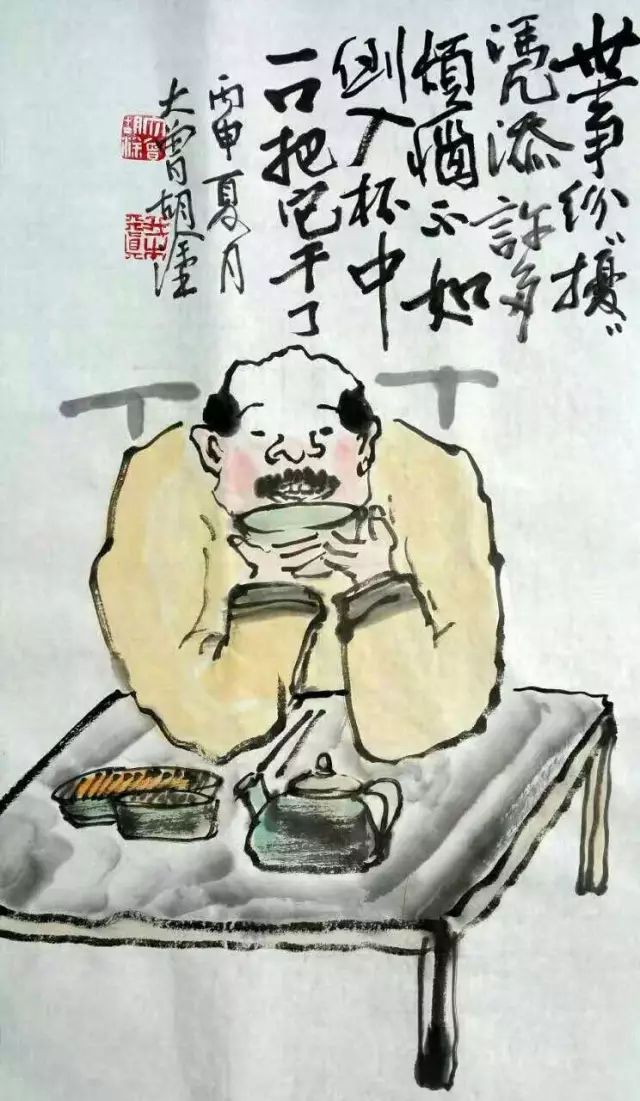 世事纷〃扰〃
凭添许多
烦恼不如
倒入杯中
一口把它干了
丙申夏月
大曾胡涂